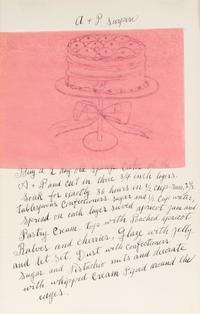 A + P Surprise
Using a 2 day old sponge
A + P and cut in three 3/4 inch layers.
Soak for exactly 36 hours in 1/2 cup rum, 2 1/3
tablespoons Confectioners sugar and 1/2 cup water,
spread on each layer sieved apricot jam and
Pastry Cream, top with Poached apricot
Halves and cherries, Glaze with jelly
and let set. Dust with confectioners
Sugar and Pistachio nuts and decorate
with whipped Cream Piped around the
edges.